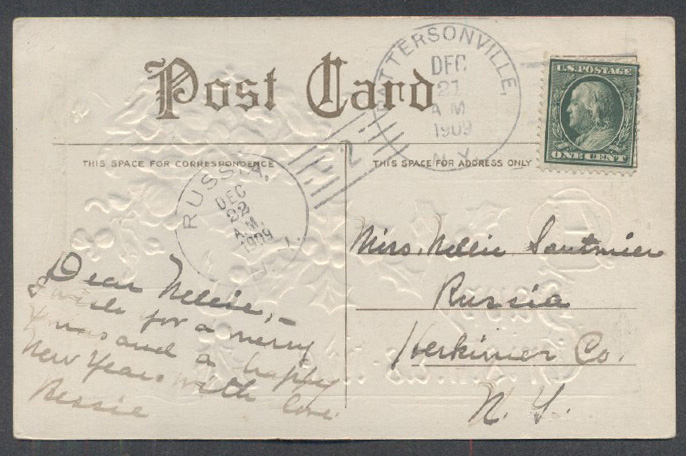 Post Card
THIS SPACE FOR CORRESPONDENCE
THIS SPACE FOR ADDRESS ONLY
PATTERSONVILLE,
DEC
21
A M
1909
N. Y.
2
U.S. POSTAGE
ONE CENT
RUSSIA,
DEC
22
A.M.
1909
Dear Nellie,-
wish for a merry
Xmas and a happy
New Years with love
Bessie
Miss. Nellie
Russia
Herkimer Co.
N. Y.